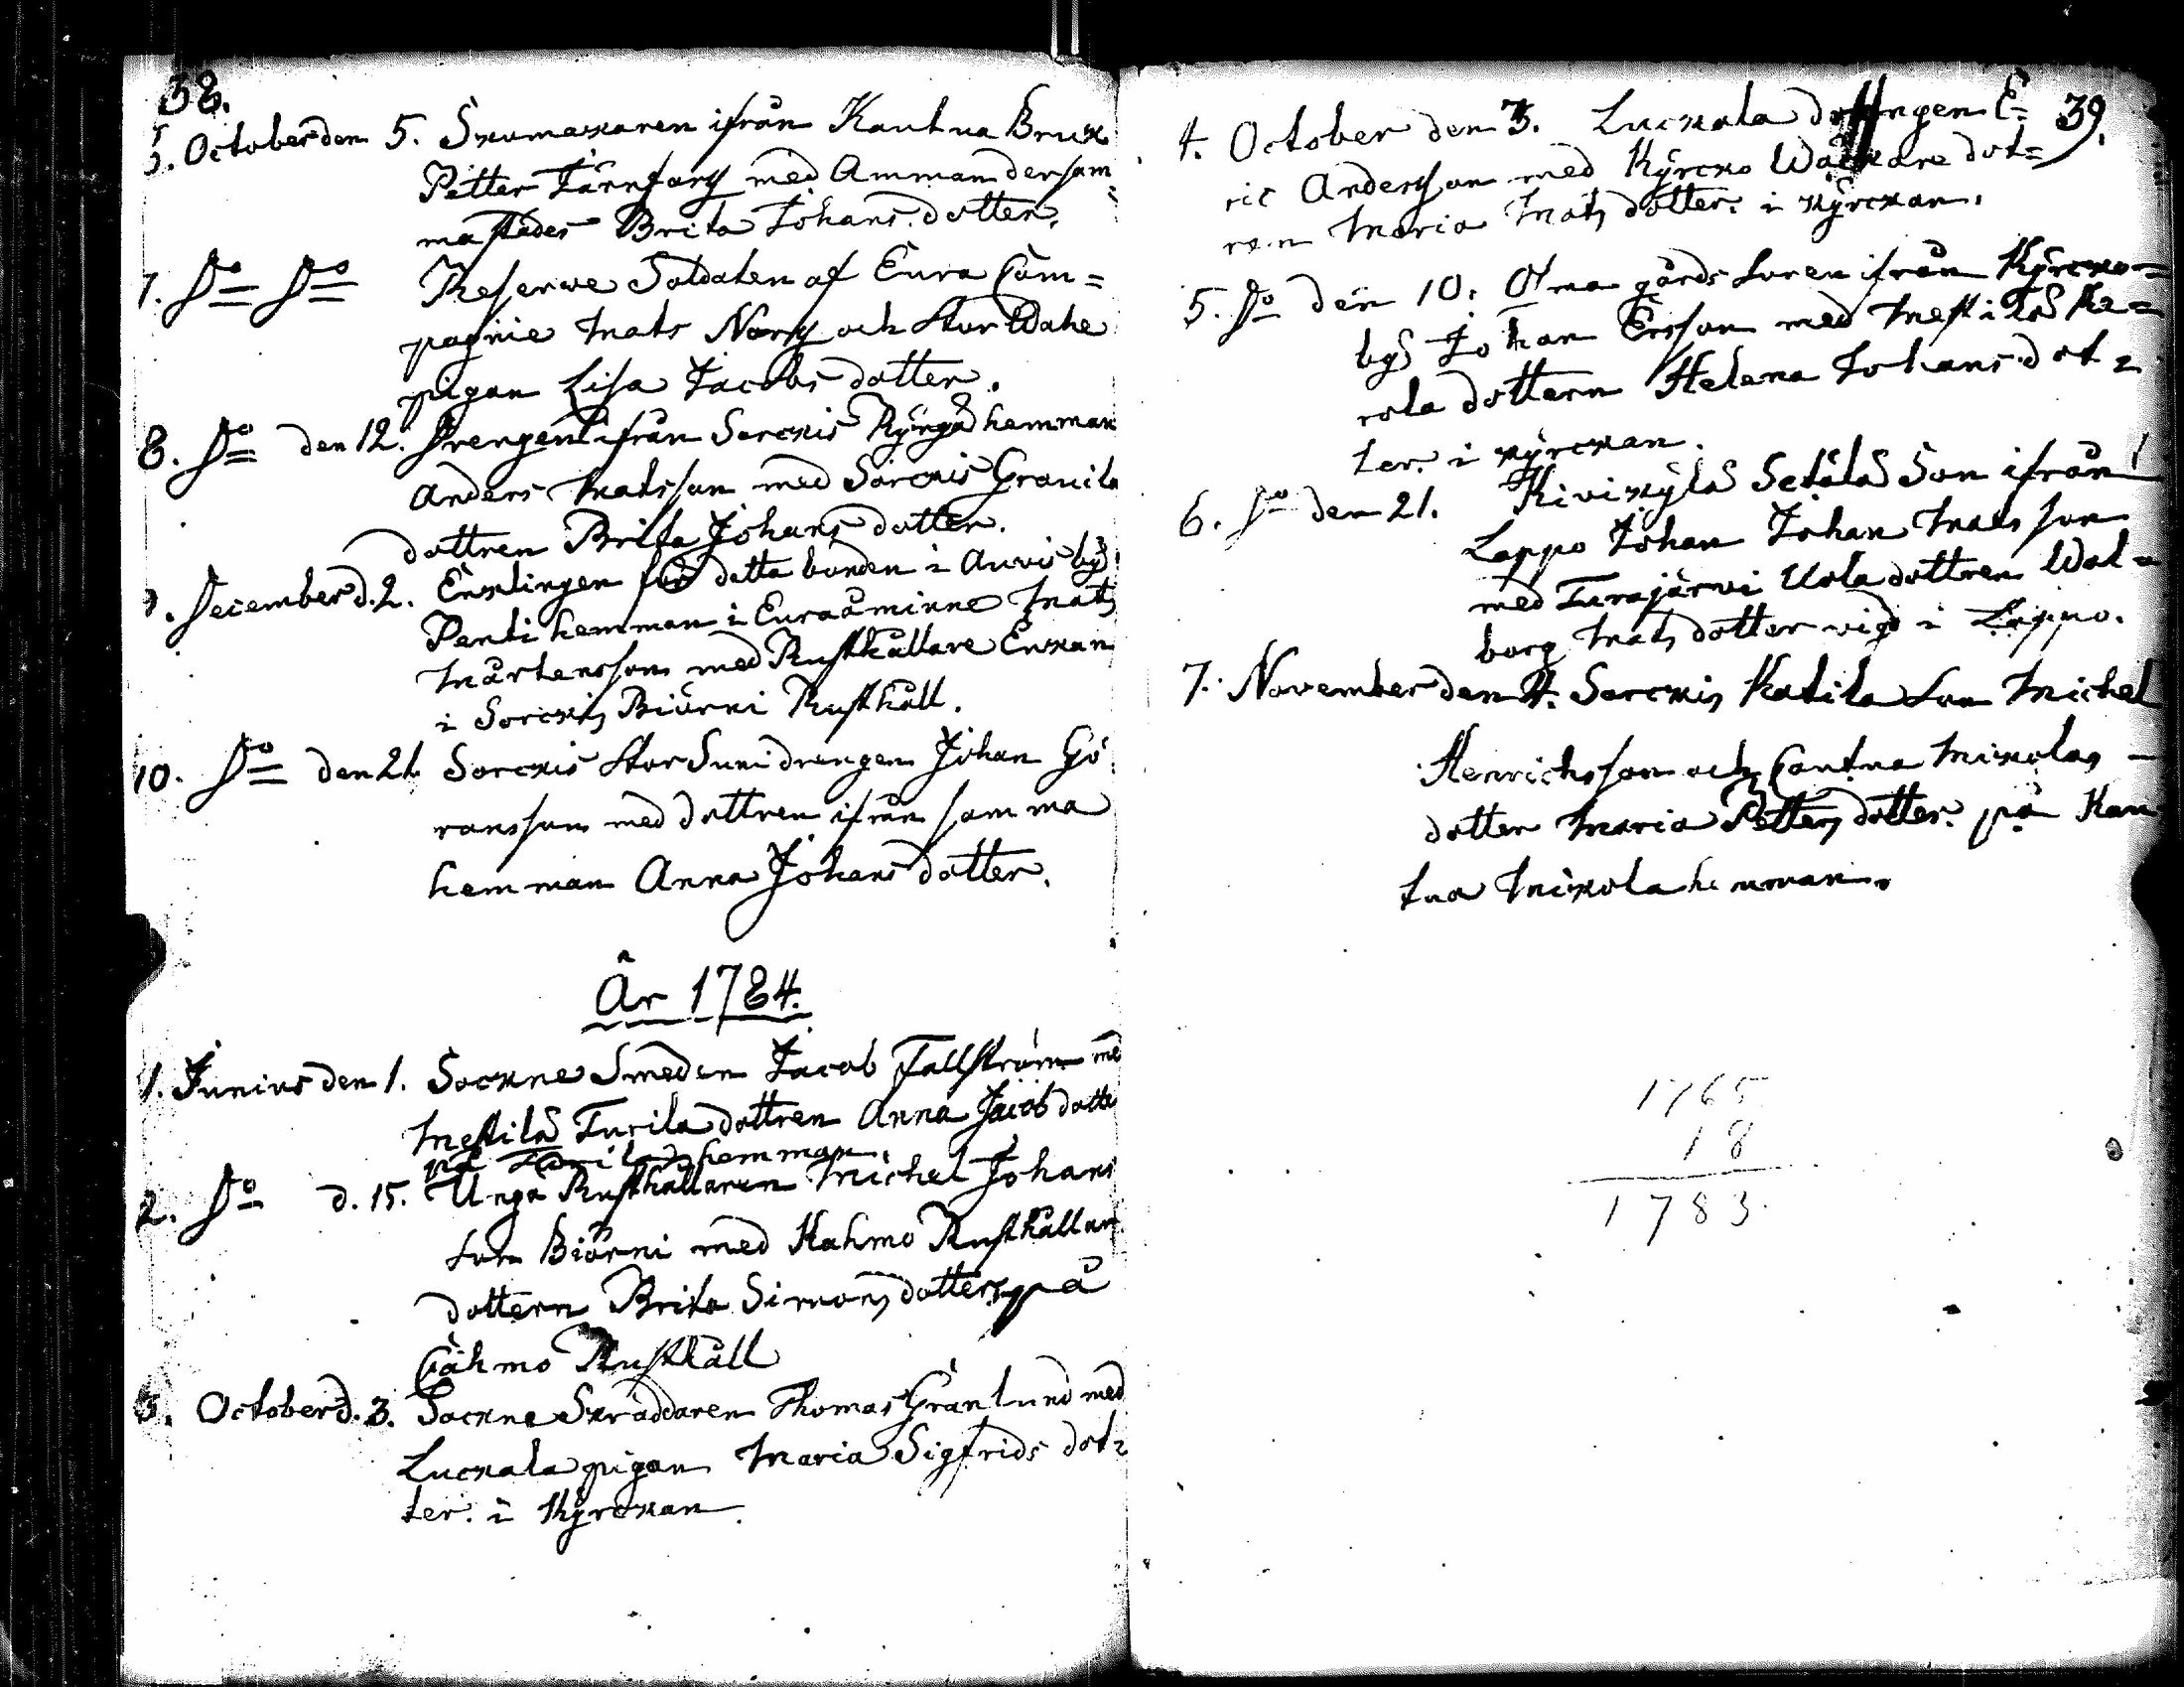 38.
6. October den 5. Skomakaren ifrån Kautua Bruk
Petter Färnfors med Amman dersam-
mastädes Brita Johans dotter.
7. Do Do Reserve Soldaten af Eura Com=
pagnie Mats Norg och Stor Wahe
pigan Lisa Jacobs dotter.
8. Do den 12. Drengen ifrån Sorckis Kÿngä hemman
Anders Matsson med Sorckis Gravila
dottren Brita Johans dotter.
9. December d. 2. Enklingen för detta bonden i Auvis bÿ
Penti hemman i Euraåminne Mats
Mårtensson med Rusthållare Enkan
i Sorckis Biörni Rusthåll.
10. Do den 21. Sorckis Stor Suni drengen Johan Gö
ransson med dottren ifrån samma
hemman Anna Johans dotter.
År 1784.
1. Junius den 1. Sockne Smeden Jacob Fallström med
Mestilä Turila dottren Anna Jacobs dotter
på Turila hemman.
2. Do d. 15. Unga Rusthållaren Michel Johans
son Biörni med Kahmo Rusthållare
dottern Brita Simons dotter på
Cahmo Rusthåll
3. October d. 3. Sockne Skräddaren Thomas Granlund med
Luckala pigan Maria Sigfrids dot=
ter. i Kÿrckan.
39.
4. October den 3. Luckala drengen E=
ric Andersson med Kÿrcko Wäckare dot=
ren Maria Mats dotter. i kÿrckan.
5. Do den 10. Oma gårds Soren ifrån Kÿrcko=
bÿ Johan Ersson med Mestilä Ke=
rola dottern Helena Johans dot=
ter. i kÿrckan.
6. Do den 21. Kivikÿlä Setälä Son ifrån
Lappo Johan Johan Matsson
med Turajärvi Uola dottren Wal=
borg Mats dotter vigd i Lappo.
7. November den 4. Sorckis Katila Son Michel
Henrichsson och Cautua Mikolas
dotter Maria Petters dotter. på Kau
tua Mikola hemman.
1765
18
1783.